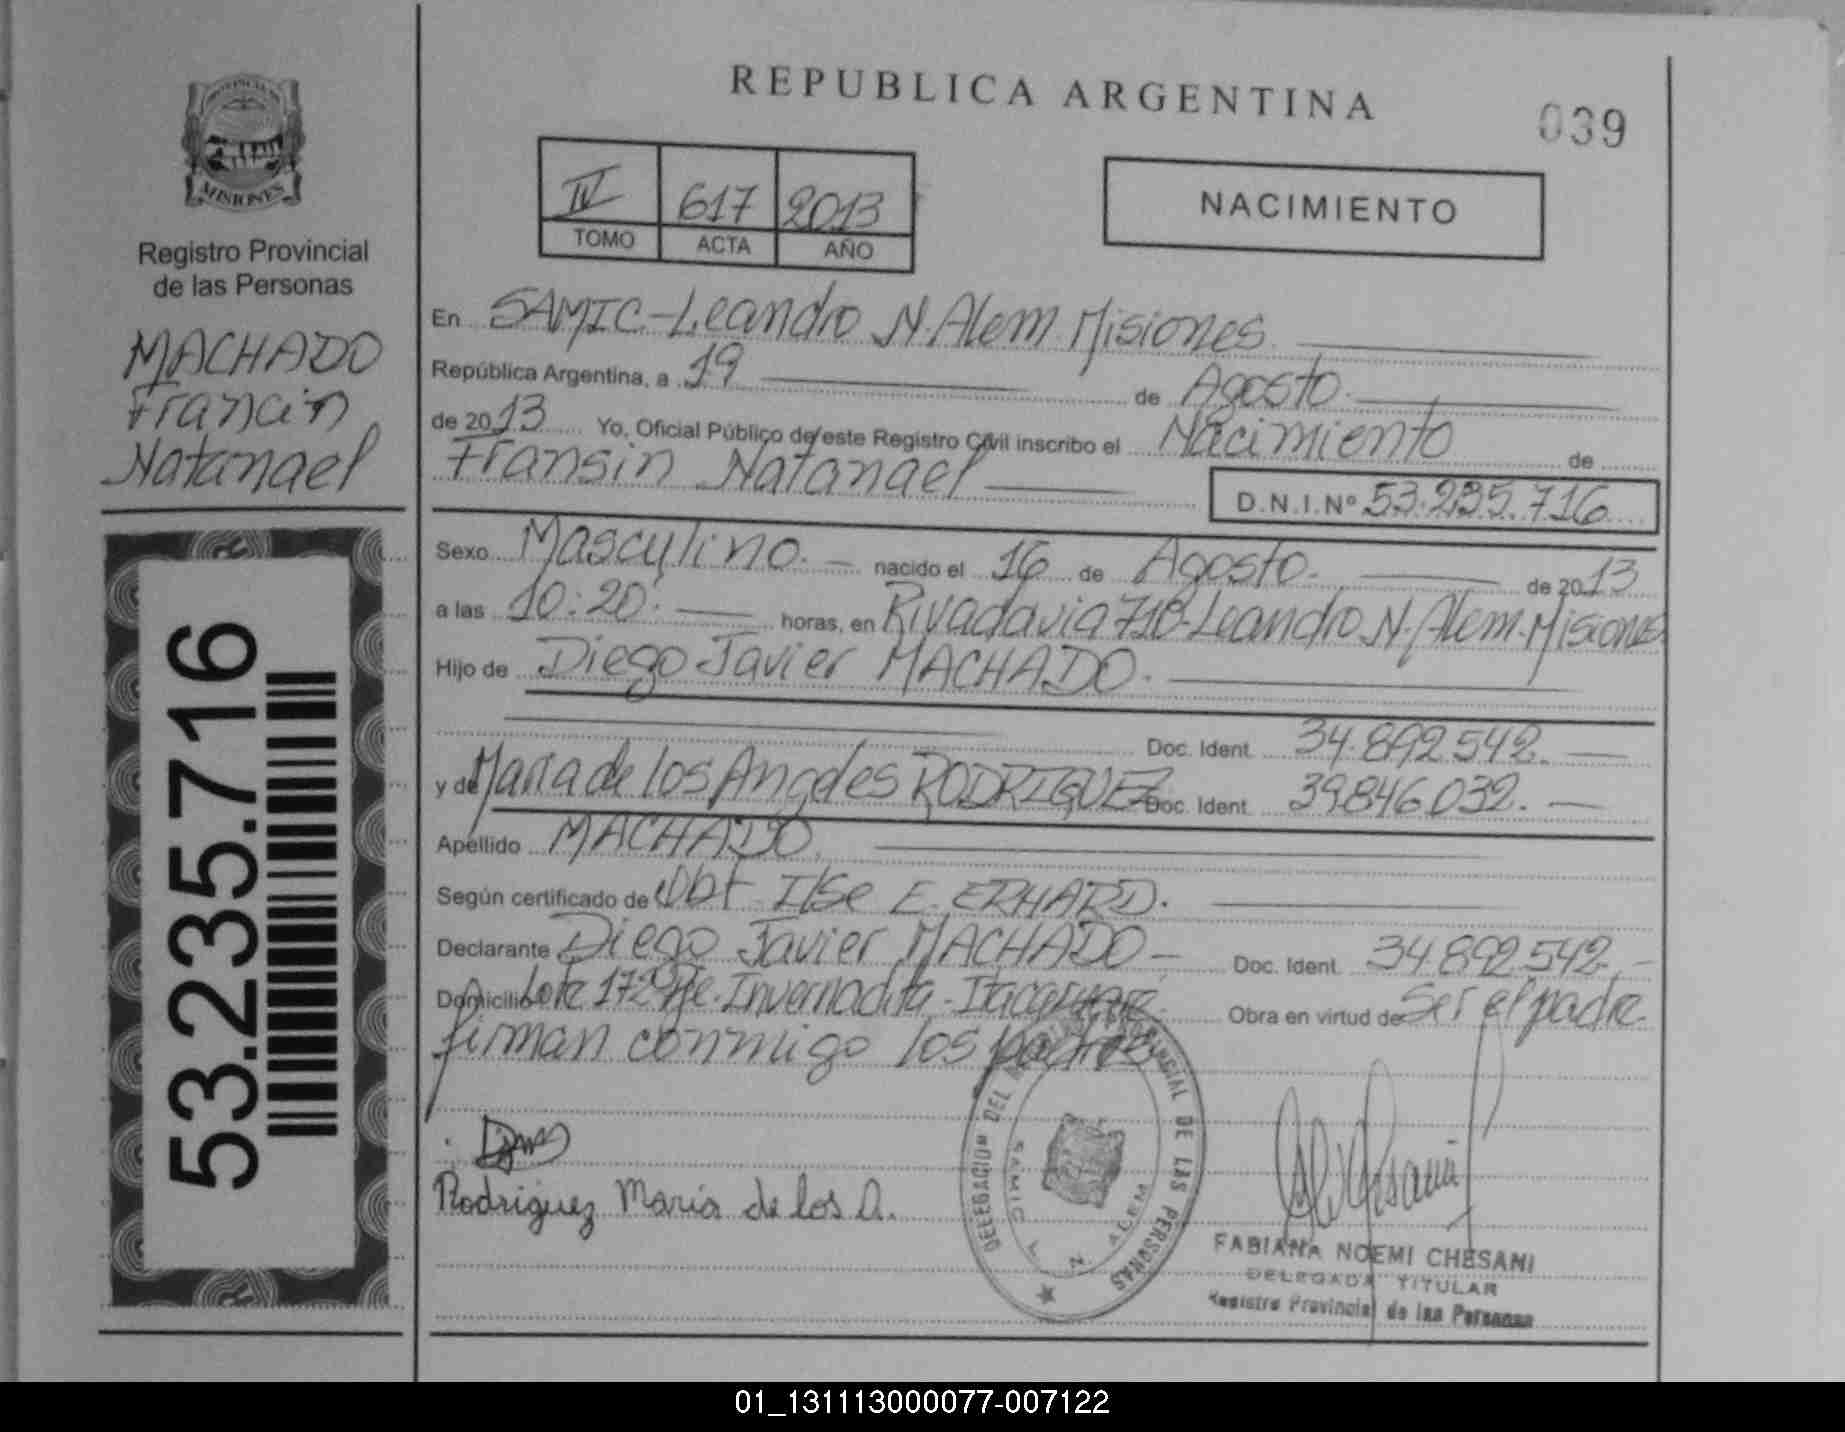 REPUBLICA ARGENTINA
039
PROVINCIA DE
MISIONES
Registro Provincial
de las Personas
MACHADO
Francin
Natanael
53.235.716
IV 617 2013
TOMO ACTA AÑO
NACIMIENTO
En SAMIC-Leandro N. Alem. Misiones
República Argentina, a 19 de Agosto.
de 2013 Yo, Oficial Público de este Registro Civil inscribo el Nacimiento de
Fransin Natanael D.N.I.Nº 53.235.716
Sexo Masculino. nacido el 16 de Agosto. de 2013
a las 10:20. horas, en Rivadavia 710-Leandro N. Alem-Misiones
Hijo de Diego Javier MACHADO.
Doc. Ident. 34.892.542.
y de Maria de los Angeles RODRIGUEZ Doc. Ident. 39.846.032.
Apellido MACHADO.
Según certificado de Obt Ilse E. ERHARD.
Declarante Diego Javier MACHADO - Doc. Ident. 34.892.542.-
Domicilio Lote 172 Invernadita - Itacaruaré. Obra en virtud de Ser el padre.
firman conmigo los padres
Rodriguez Maria de los A.
DELEGACION DEL REGISTRO PROVINCIAL DE LAS PERSONAS
SAMIC L N ALEM
FABIANA NOEMI CHESANI
DELEGADA TITULAR
Registro Provincial de las Personas
01_131113000077-007122